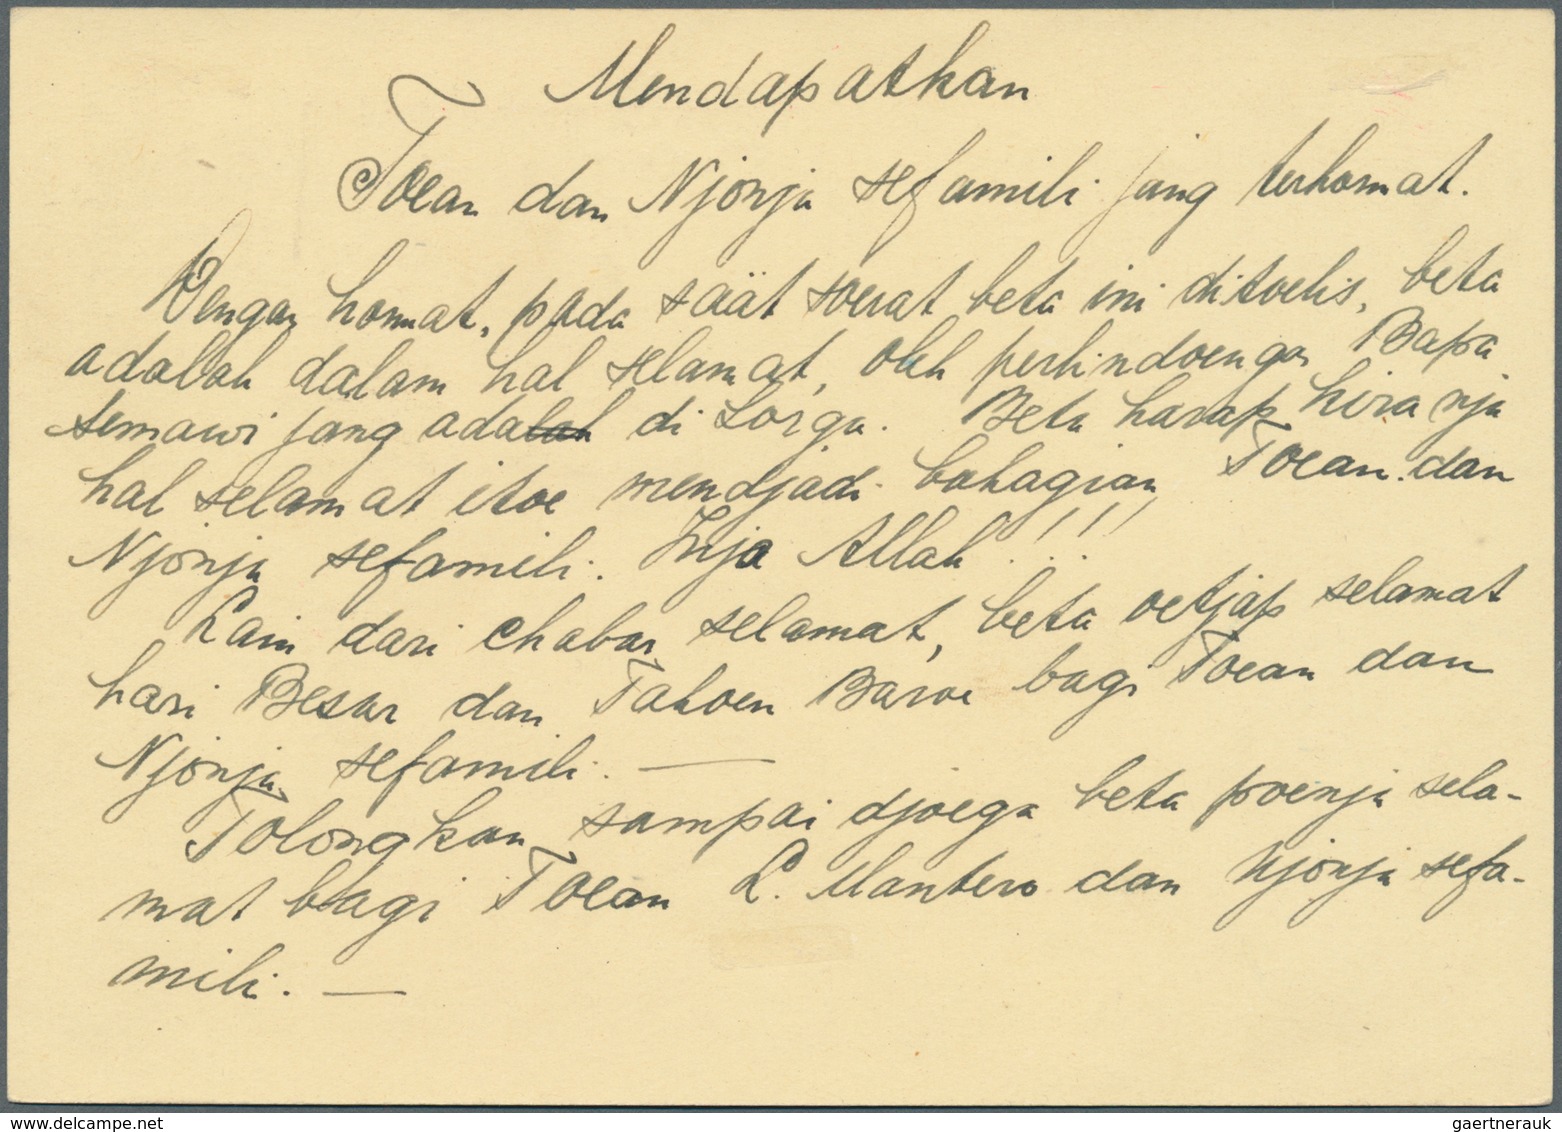 Mendapatkan
Toean dan Njonja sefamili jang terhormat.
Dengan hormat, pada saät soerat beta ini ditoelis, beta
adalah dalam hal selamat, oleh perlindoengan Bapa
semawi jang adalah di Sorga. Beta harap kira nja
hal selamat itoe mendjadi bahagian Toean dan
Njonja sefamili. Insja Allah !!!
Lain dari chabar selamat, beta oetjap selamat
hari Besar dan Tahoen Baroe bagi Toean dan
Njonja sefamili. —
Tolongkan sampai djoega beta poenja sela-
mat bagi Toean L. Mantero dan Njonja sefa-
mili. —
gaertnerauk